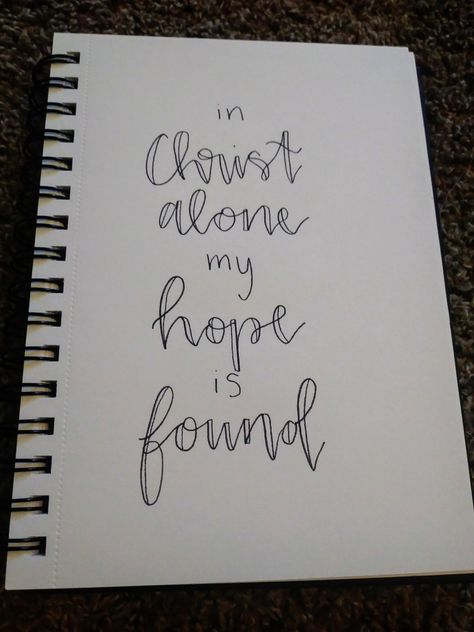 in
Christ
alone
my
hope
is
found